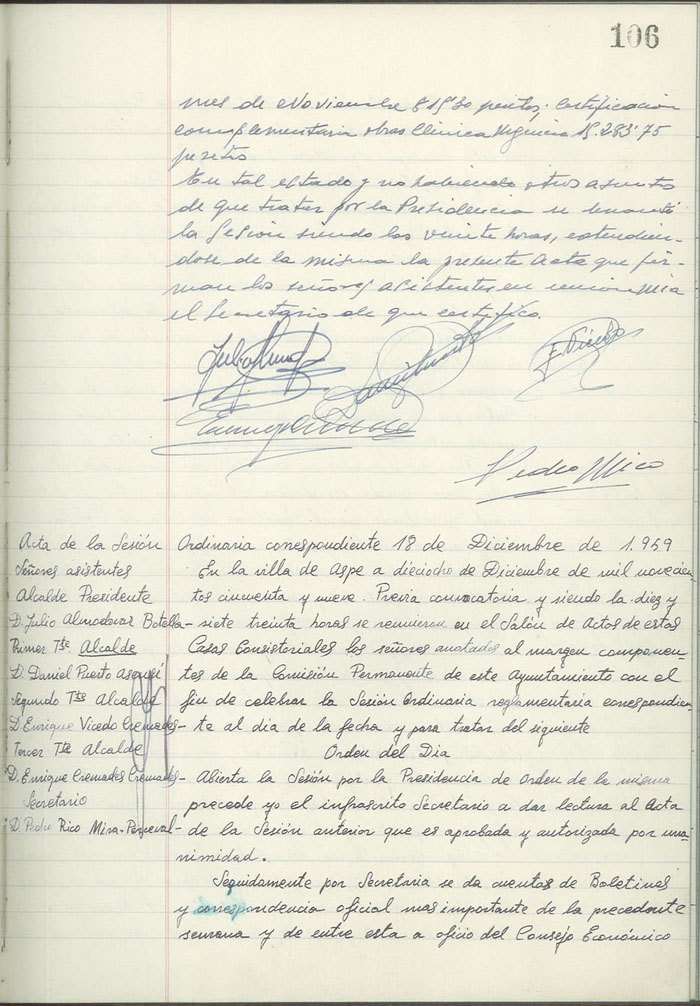 106
mes de Noviembre 819'30 pesetas; Certificacion
complementaria obras Clinica Urgencia 15.283'75
pesetas
En tal estado y no habiendo otros asuntos
de que tratar por la Presidencia se levantó
la Sesion siendo las veinte horas, extendien-
dose de la misma la presente Acta que fir-
man los señores asistentes en union mia
el Secretario de que certifico.
Pedro Rico
Acta de la Sesión Ordinaria correspondiente 18 de Diciembre de 1.959
Señores asistentes
Alcalde Presidente
D. Julio Almodovar Botella-
Primer Tte Alcalde
D. Daniel Puerto
Segundo Tte Alcalde
D. Enrique Vicedo Cremades-
Tercer Tte Alcalde
D. Enrique Cremades Cremades-
Secretario
D. Pedro Rico Mira-Perceval-
En la villa de Aspe a dieciocho de Diciembre de mil novecien-
tos cincuenta y nueve. Previa convocatoria y siendo la diez y
siete treinta horas se reunieron en el Salón de Actos de estas
Casas Consistoriales los señores anotados al margen componen-
tes de la Comisión Permanente de este Ayuntamiento con el
fin de celebrar la Sesión Ordinaria reglamentaria correspondien-
te al dia de la fecha y para tratar del siguiente
Orden del Dia
Abierta la Sesión por la Presidencia de Orden de la misma
precede yo el infrascrito Secretario a dar lectura al Acta
de la Sesión anterior que es aprobada y autorizada por una-
nimidad.
Seguidamente por Secretaria se da cuentas de Boletines
y correspondencia oficial mas importante de la precedente
semana y de entre esta a oficio del Consejo Económico